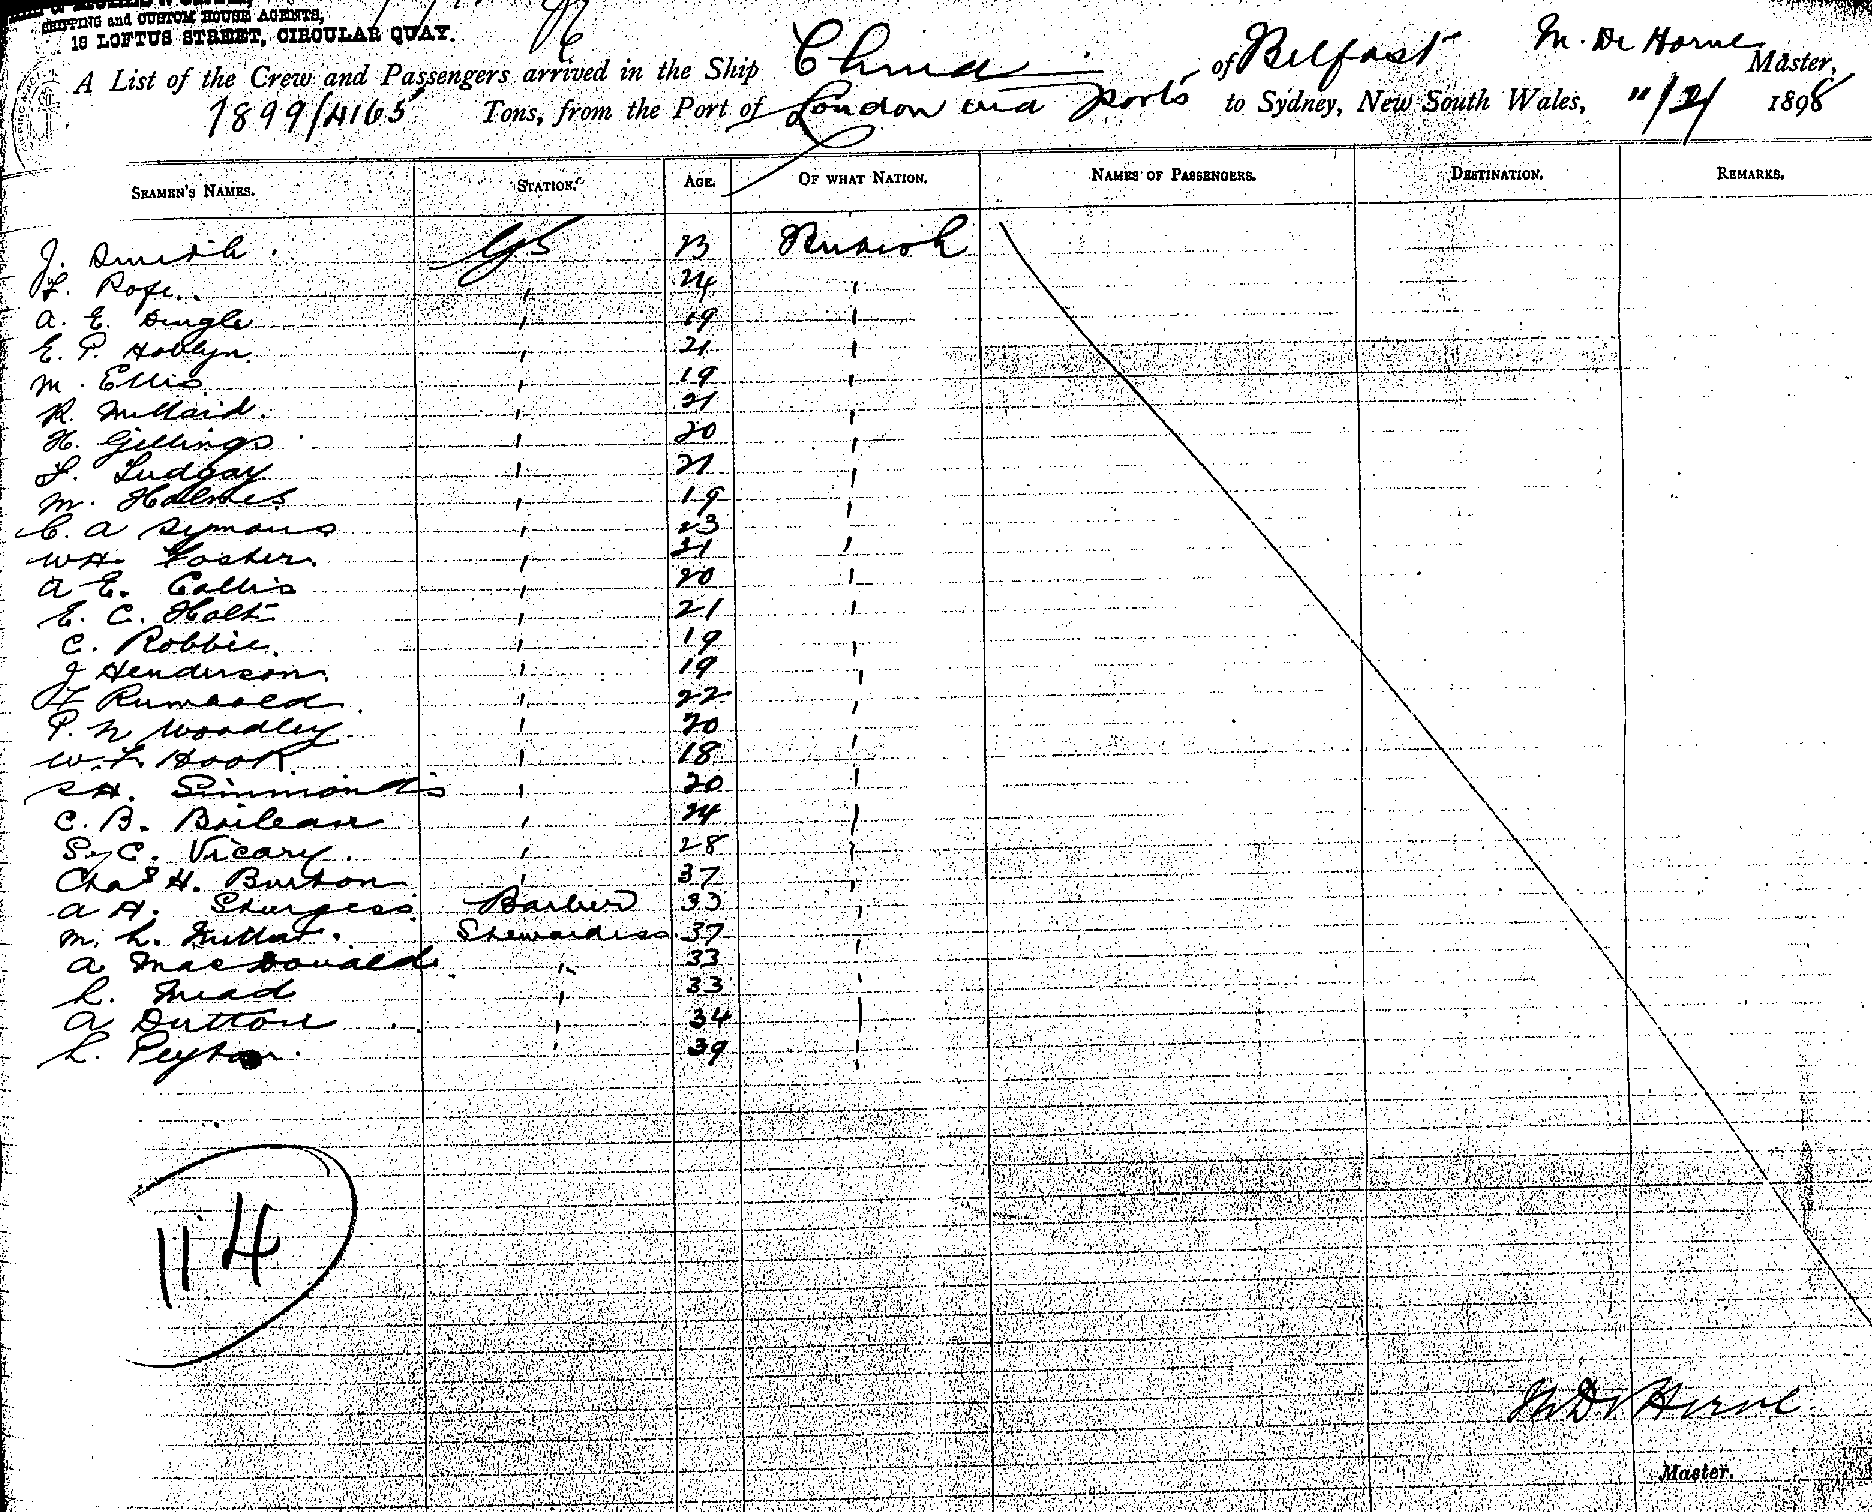 SHIPPING and CUSTOM HOUSE AGENTS,
10 LOFTUS STREET, CIRCULAR QUAY.
A List of the Crew and Passengers arrived in the Ship China of Belfast M. De Horne Master,
7899/4165 Tons, from the Port of London and ports to Sydney, New South Wales, 11/2/ 1898
SEAMEN'S NAMES. STATION. AGE. OF WHAT NATION. NAMES OF PASSENGERS. DESTINATION. REMARKS.
J. Smith GS 23 British
L. Rofe 24
A. E. Dingle 19
E. P. Hoblyn 21
M. Ellis 19
R. Millard 21
H. Gillings 20
L. Ludgay 21
M. Holmes 19
C. A Symons 23
W H. Foster 21
A E. Collis 20
E. C. Holt 21
C. Robbie 19
J Henderson 19
F Rumbold 22
P. N Woodley 20
W. F. Hook 18
S H. Simmonds 20
C. B. Boileau 24
S. C. Vicary 28
Chas H. Burton 37
A H. Sturgess Barber 33
M. L. Stewardess 37
A MacDonald 33
L. Mead 33
A Dutton 34
L. Peyton 39
114
M De Horne
Master.